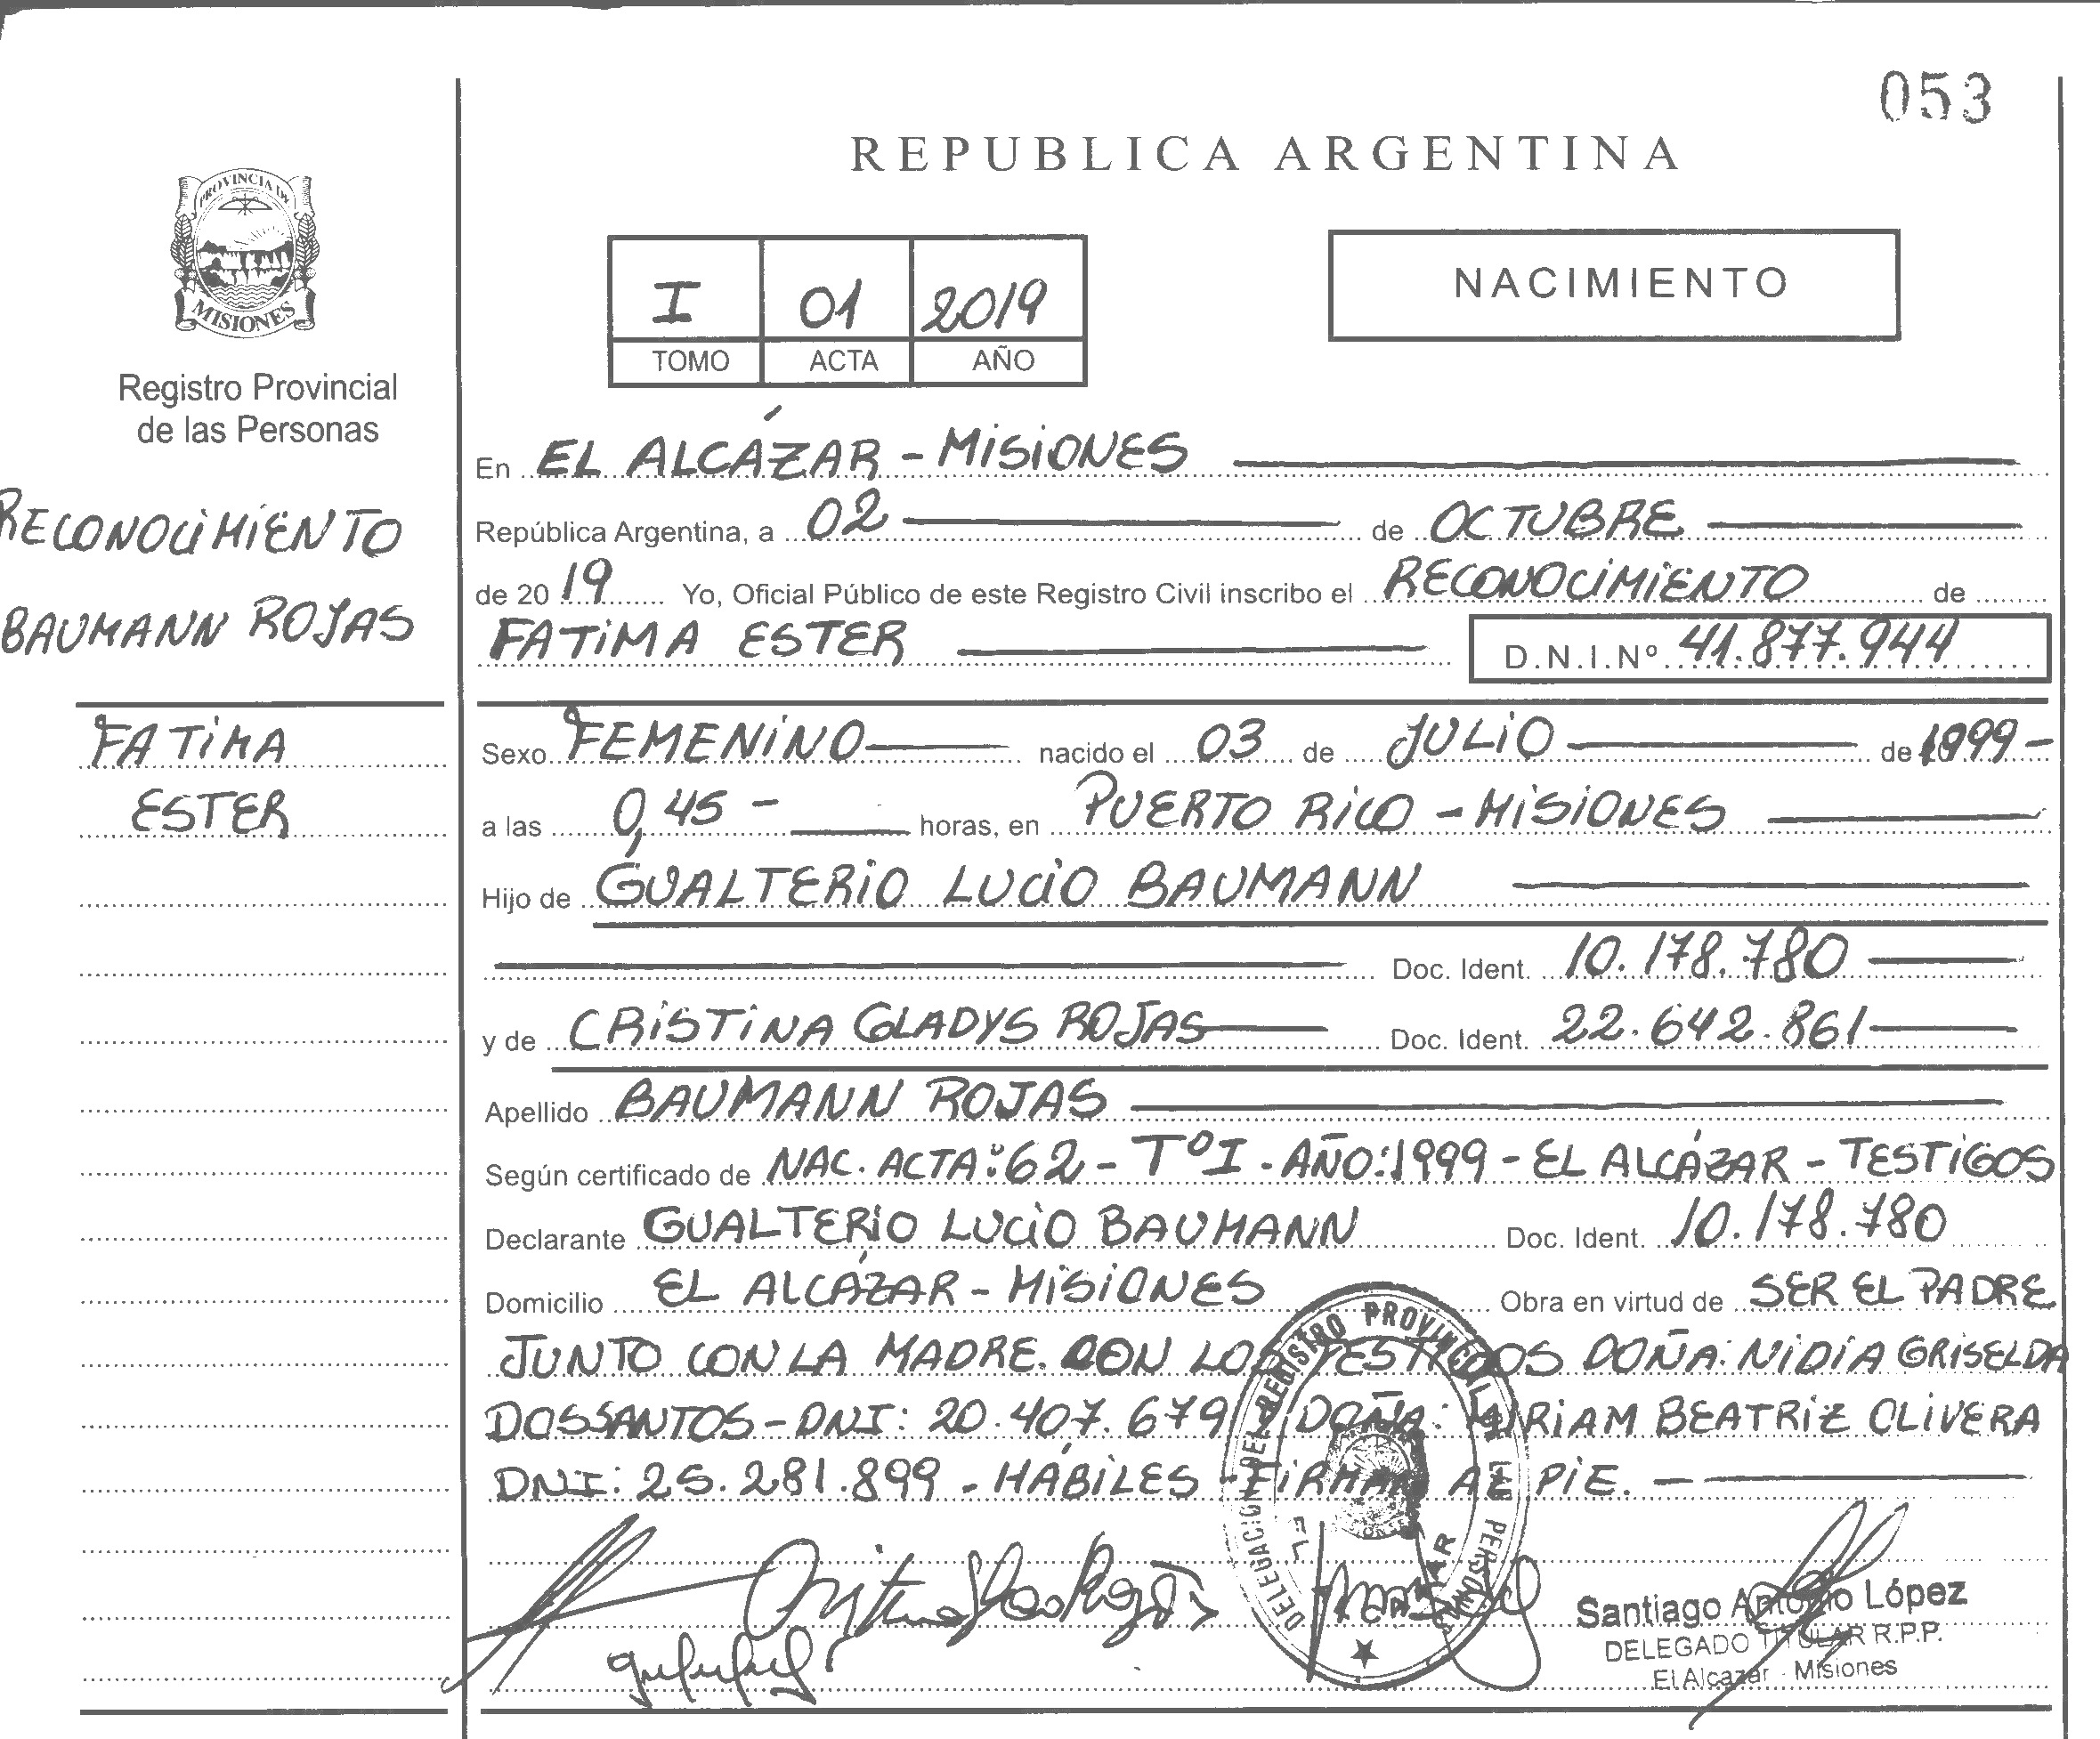 053
REPUBLICA ARGENTINA
PROVINCIA DE
MISIONES
Registro Provincial
de las Personas
RECONOCIMIENTO
BAUMANN ROJAS
FATIMA
ESTER
I 01 2019
TOMO ACTA AÑO
NACIMIENTO
En EL ALCÁZAR - MISIONES
República Argentina, a 02 de OCTUBRE
de 2019 Yo, Oficial Público de este Registro Civil inscribo el RECONOCIMIENTO de
FATIMA ESTER D.N.I.Nº 41.877.944
Sexo FEMENINO nacido el 03 de JULIO de 1999-
a las 0,45 - horas, en PUERTO RICO - MISIONES
Hijo de GUALTERIO LUCIO BAUMANN
Doc. Ident. 10.178.780
y de CRISTINA GLADYS ROJAS Doc. Ident. 22.642.861
Apellido BAUMANN ROJAS
Según certificado de NAC. ACTA: 62 - TºI - AÑO: 1999 - EL ALCÁZAR - TESTIGOS
Declarante GUALTERIO LUCIO BAUMANN Doc. Ident. 10.178.780
Domicilio EL ALCÁZAR - MISIONES Obra en virtud de SER EL PADRE
JUNTO CON LA MADRE. CON LOS TESTIGOS DOÑA: NIDIA GRISELDA
DOSSANTOS - DNI: 20.407.679 Y DOÑA: MIRIAM BEATRIZ OLIVERA
DNI: 25.281.899 - HÁBILES - FIRMAN AL PIE. -
DELEGACION DEL REGISTRO PROVINCIAL DE LAS PERSONAS
EL ALCAZAR
Santiago Antonio López
DELEGADO TITULAR R.P.P.
El Alcazar - Misiones